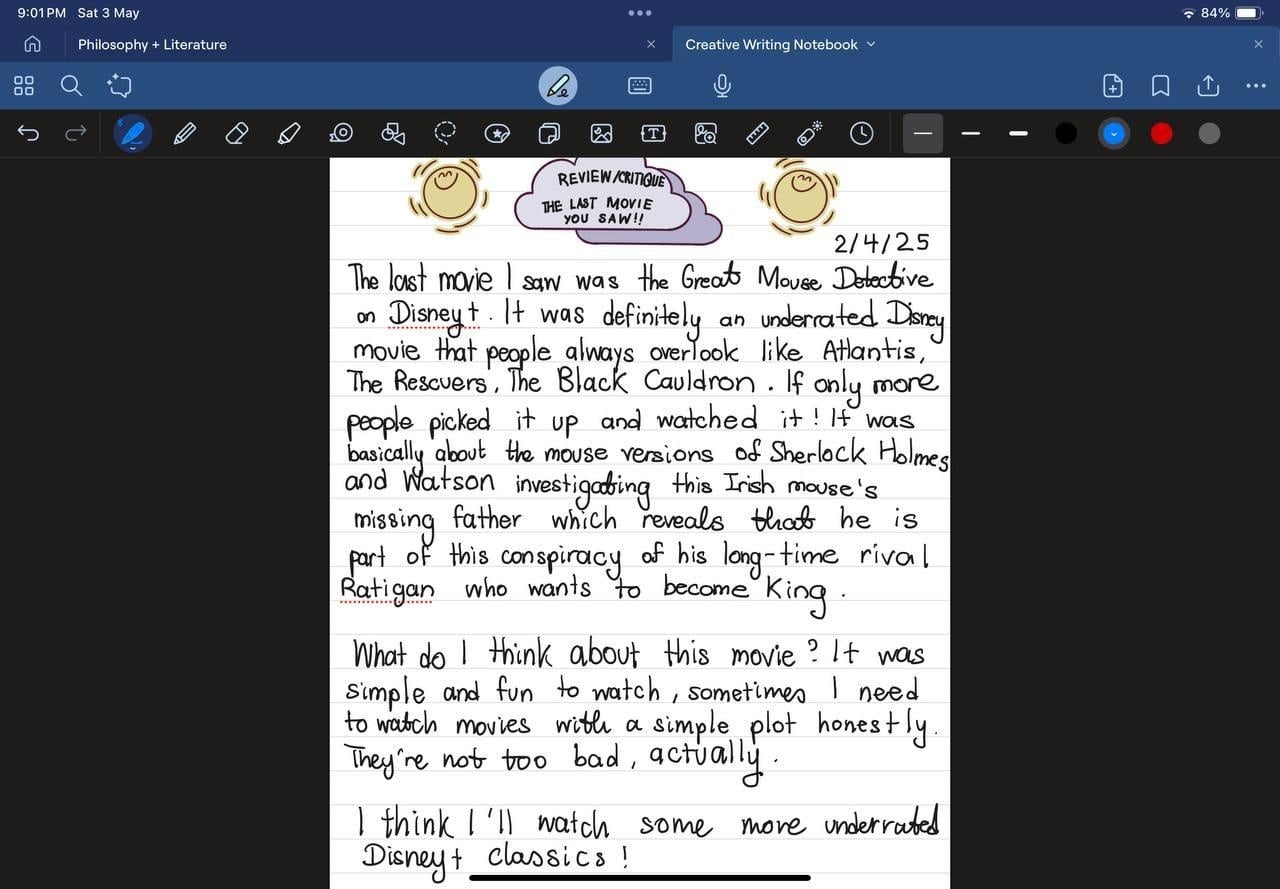 9:01 PM Sat 3 May
84%
Philosophy + Literature
Creative Writing Notebook
REVIEW/CRITIQUE
THE LAST MOVIE
YOU SAW!!
2/4/25
The last movie I saw was the Great Mouse Detective
on Disney+. It was definitely an underrated Disney
movie that people always overlook like Atlantis,
The Rescuers, The Black Cauldron. If only more
people picked it up and watched it! It was
basically about the mouse versions of Sherlock Holmes
and Watson investigating this Irish mouse's
missing father which reveals that he is
part of this conspiracy of his long-time rival
Ratigan who wants to become King.
What do I think about this movie? It was
simple and fun to watch, sometimes I need
to watch movies with a simple plot honestly.
They're not too bad, actually.
I think I'll watch some more underrated
Disney+ classics!